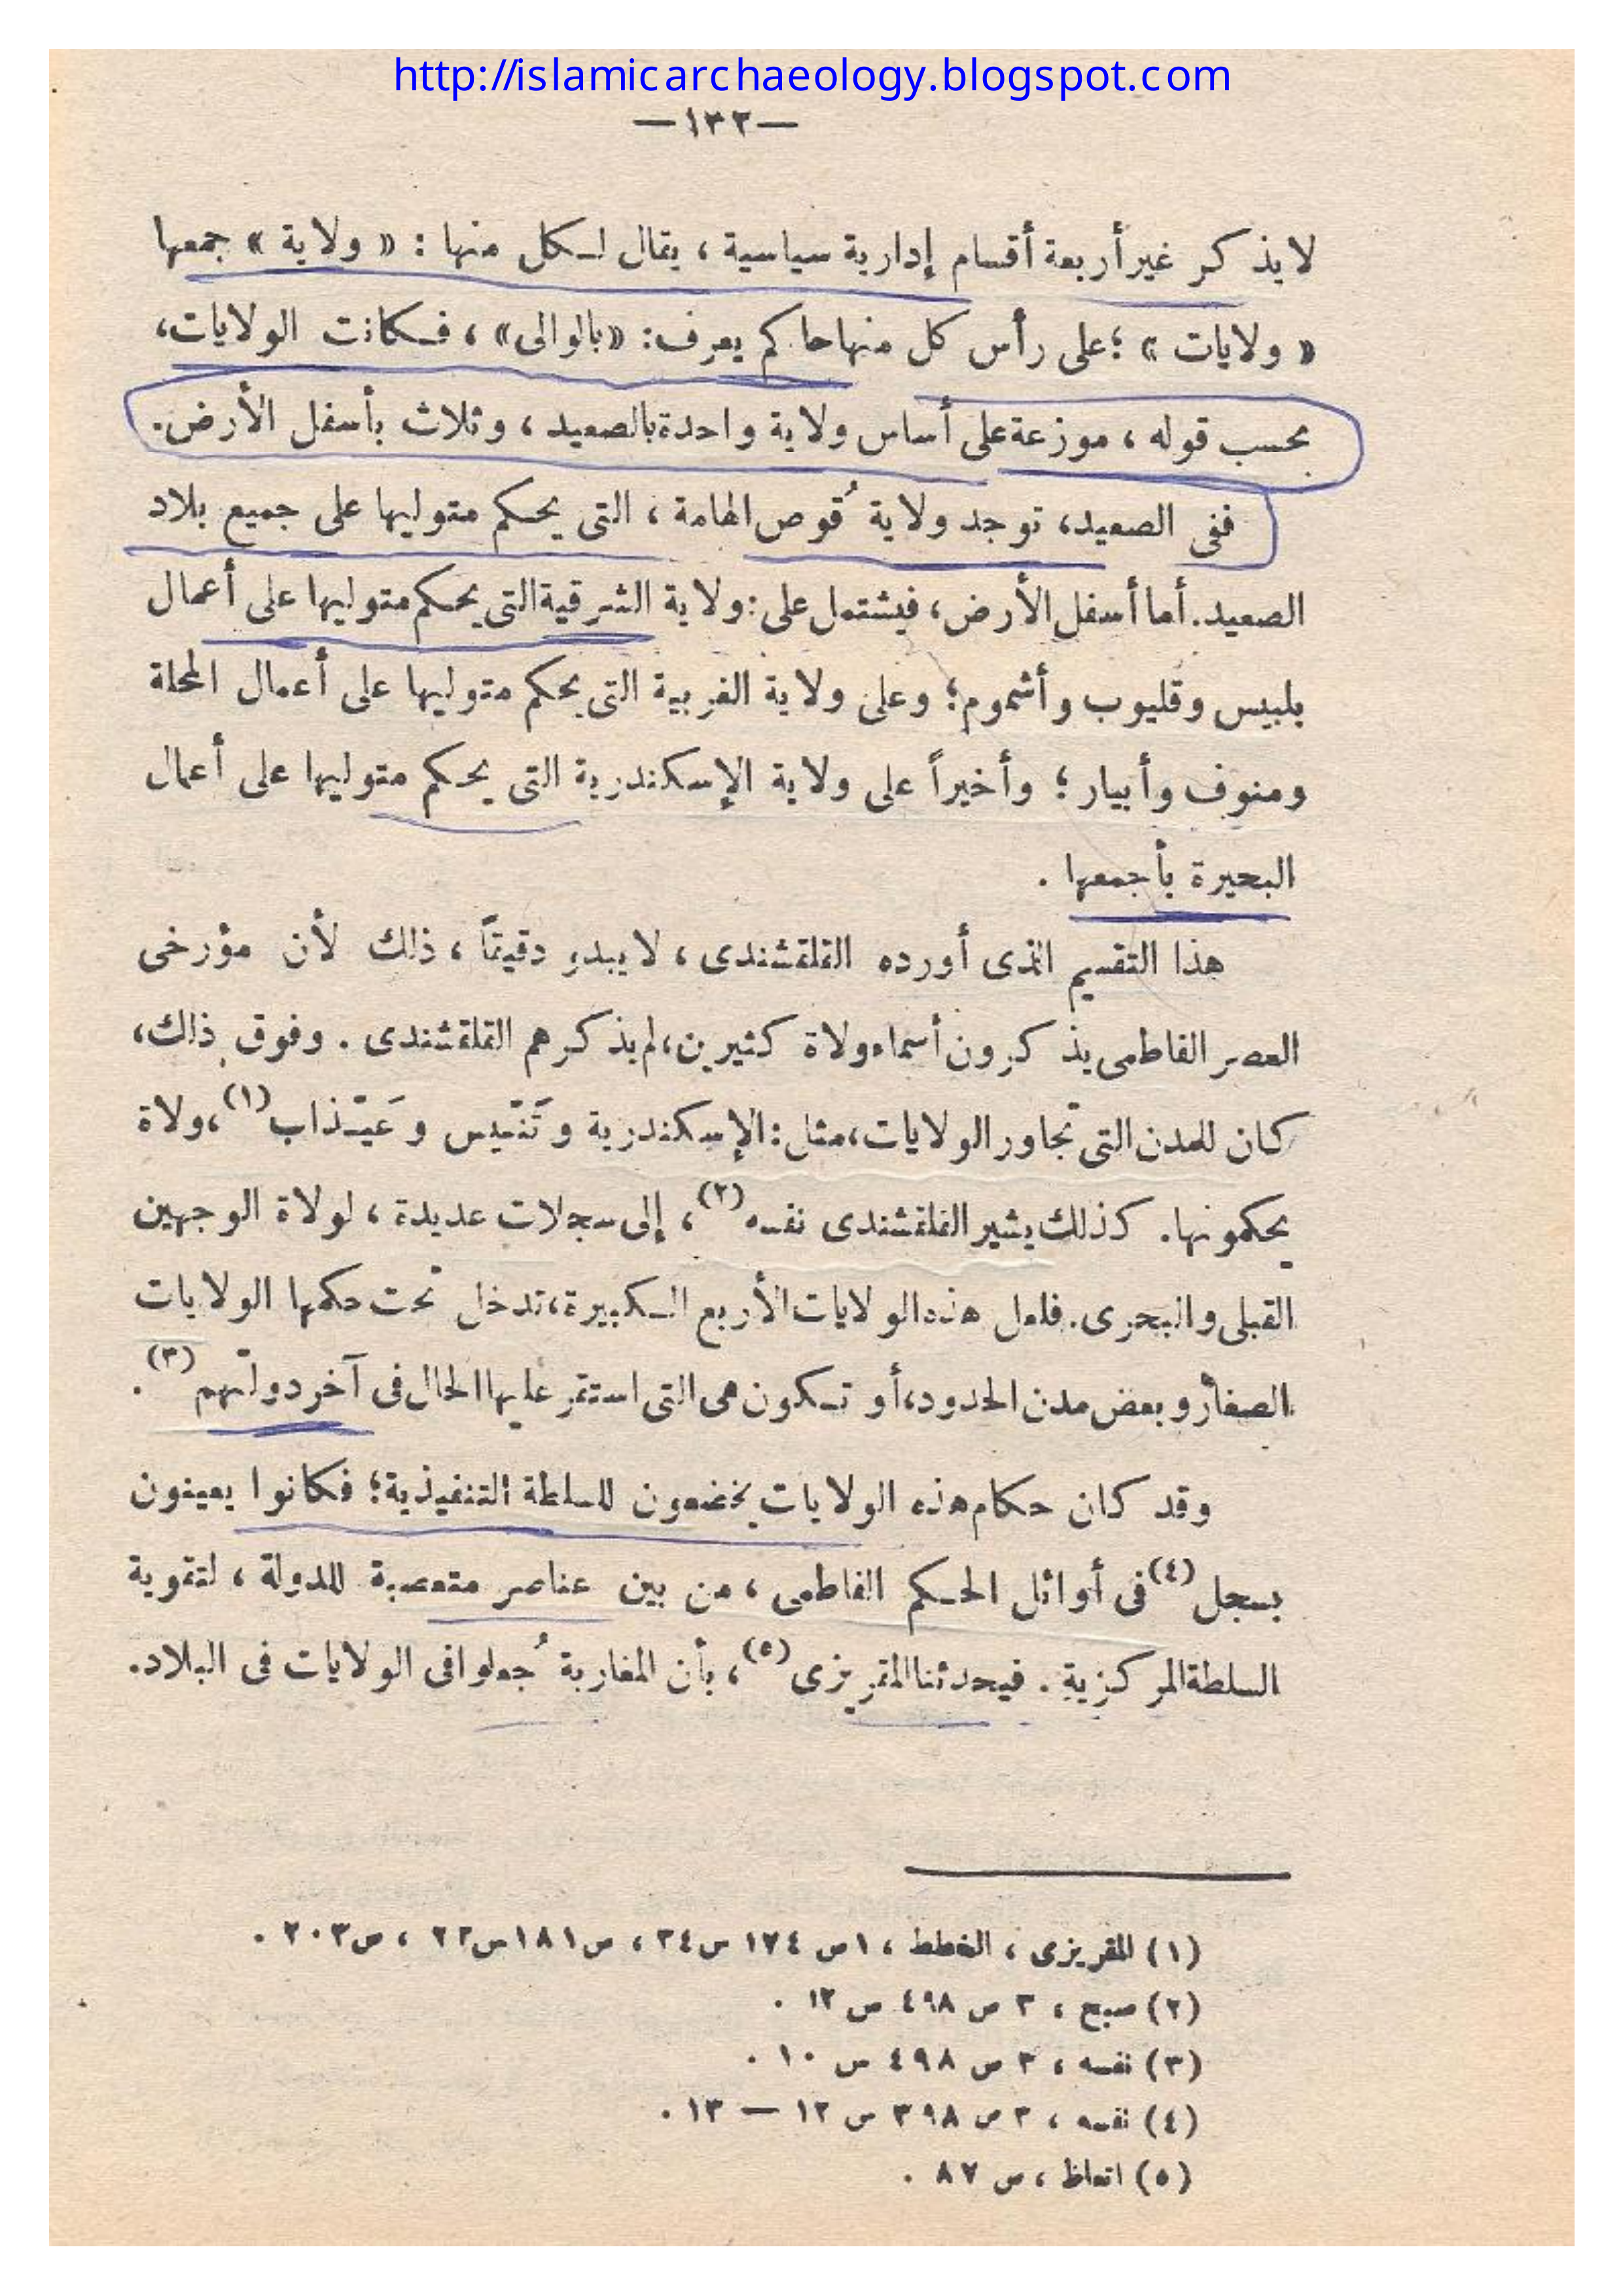 http://islamicarchaeology.blogspot.com
—١٣٢—
لا يذكر غير أربعة أقسام إدارية سياسية ، يقال لكل منها : « ولاية » جمعها
« ولايات » ؛ على رأس كل منها حاكم يعرف : «بالوالى» ، فكانت الولايات،
بحسب قوله ، موزعة على أساس ولاية واحدة بالصعيد ، وثلاث بأسفل الأرض.
ففى الصعيد، توجد ولاية قُوص الهامة ، التى يحكم متوليها على جميع بلاد
الصعيد. أما أسفل الأرض، فيشتمل على : ولاية الشرقية التى يحكم متوليها على أعمال
بلبيس وقليوب وأشموم؛ وعلى ولاية الغربية التى يحكم متوليها على أعمال المحلة
ومنوف وأبيار ؛ وأخيراً على ولاية الإسكندرية التى يحكم متوليها على أعمال
البحيرة بأجمعها .
هذا التقسيم الذى أورده القلقشندى ، لا يبدو دقيقاً ، ذلك لأن مؤرخى
العصر الفاطمى يذكرون أسماء ولاة كثيرين، لم يذكرهم القلقشندى . وفوق ذلك،
كان للمدن التى تجاور الولايات، مثل : الإسكندرية وتنّيس وعَيْذاب(١)، ولاة
يحكمونها. كذلك يشير القلقشندى نفسه(٢)، إلى سجلات عديدة ، لولاة الوجهين
القبلى والبحرى. فلعل هذه الولايات الأربع الكبيرة، تدخل تحت حكمها الولايات
الصغار وبعض مدن الحدود، أو تكون هى التى استقر عليها الحال فى آخر دولتهم(٣).
وقد كان حكام هذه الولايات يخضعون للسلطة التنفيذية؛ فكانوا يعينون
بسجل(٤) فى أوائل الحكم الفاطمى ، من بين عناصر متعصبة للدولة ، لتقوية
السلطة المركزية . فيحدثنا المقريزى(٥)، بأن المغاربة جُعلوا فى الولايات فى البلاد.
(١) المقريزى ، الخطط ، ١ ص ١٧٤ س ٣٤ ، ص ١٨١ س ٢٢ ، ص ٢٠٣ .
(٢) صبح ، ٣ ص ٤٩٨ س ١٢ .
(٣) نفسه ، ٣ ص ٤٩٨ س ١٠ .
(٤) نفسه ، ٣ ص ٣٩٨ س ١٢ — ١٣ .
(٥) اتعاظ ، ص ٨٧ .